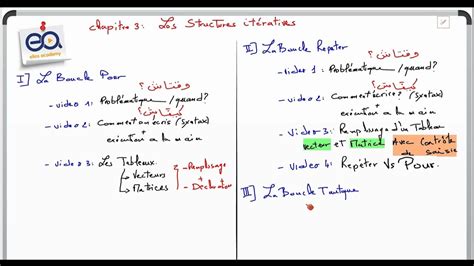 ea
elios academy
Chapitre 3: Les Structures itératives
I] La Boucle Pour
وقتاش؟
- video 1: Problématique / quand?
كيفاش؟
- video 2: Comment on écrit (Syntax)
+
exécution à la main
- video 3: Les Tableaux.
→ Vecteurs
→ Matrices
- Remplissage
+
Déclaration
II] La Boucle Repeter
وقتاش؟
- video 1: Problématique / quand?
كيفاش؟
- video 2: Comment écrire? (Syntax)
+
exécution à la main
- Video 3: Remplissage d'un Tableau
vecteur et Matrice Avec Contrôle de saisie
- Video 4: Repéter Vs Pour.
III] La Boucle Tantque